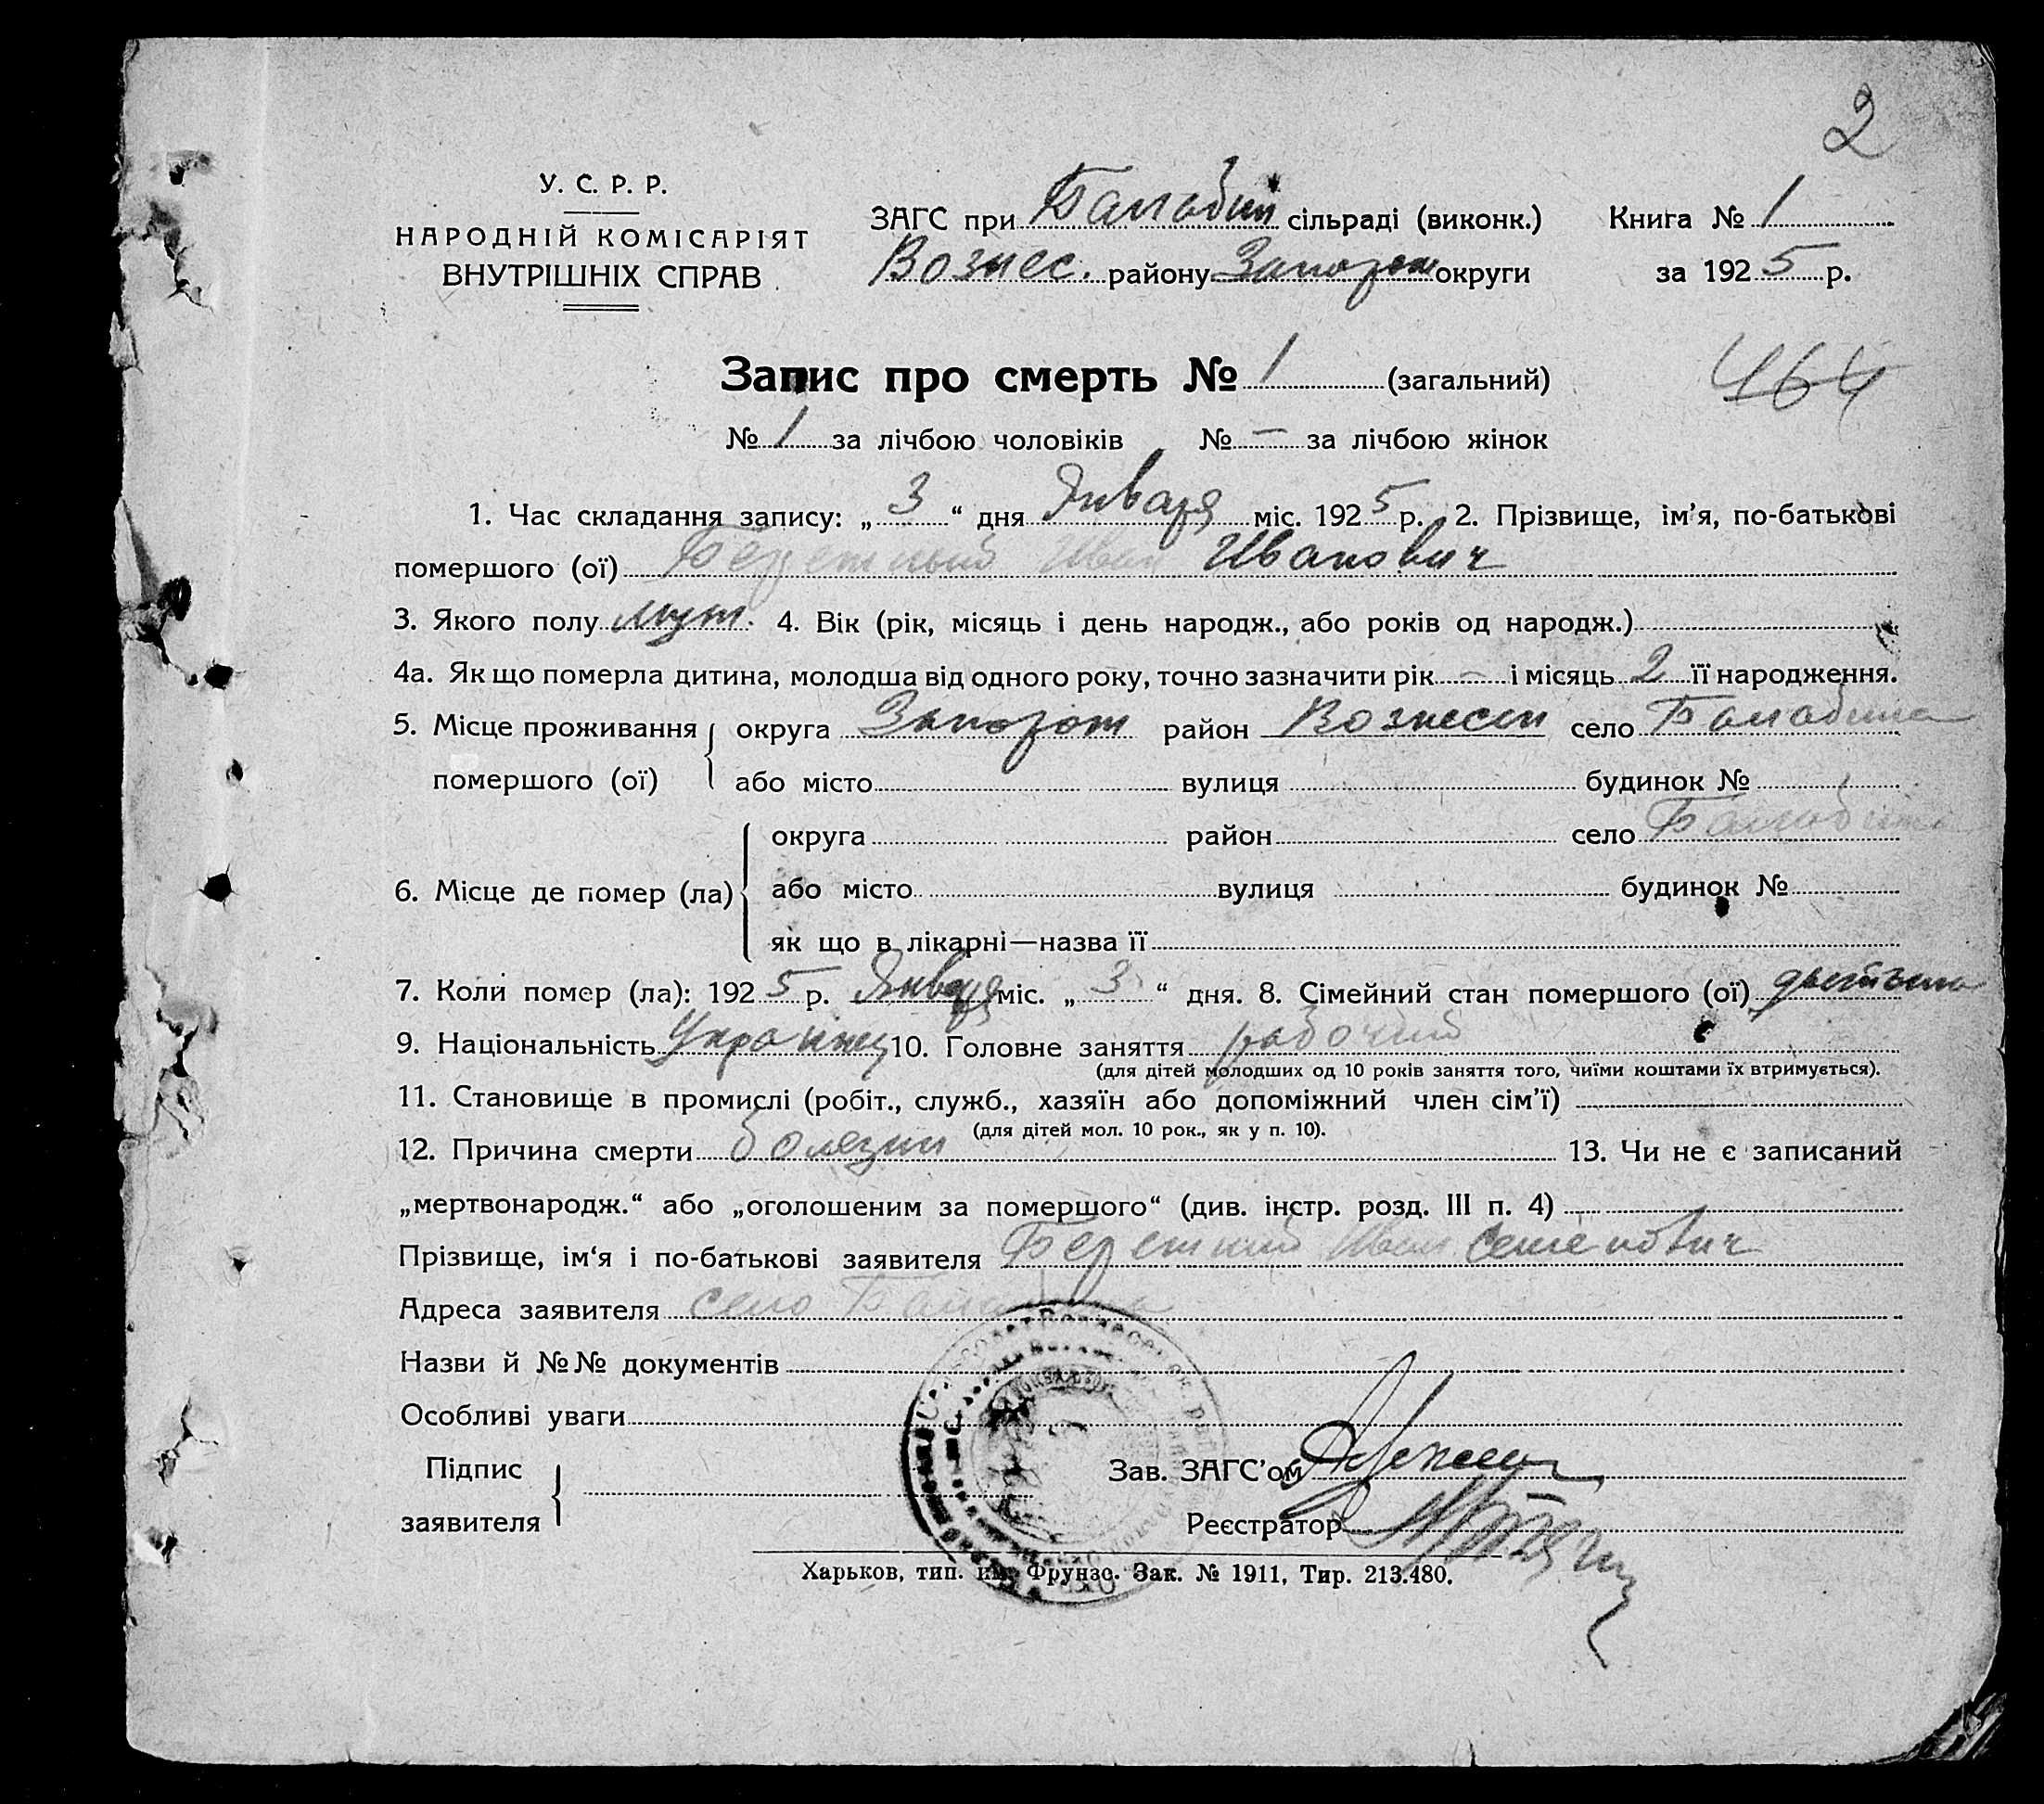 2
У. С. Р. Р.
НАРОДНІЙ КОМІСАРІЯТ
ВНУТРІШНІХ СПРАВ
ЗАГС при Балабин сільраді (виконк.) Книга № 1
Вознес. району Запорож округи за 1925 р.
Запис про смерть № 1 (загальний)
464
№ 1 за лічбою чоловіків № — за лічбою жінок
1. Час складання запису: „3“ дня Января міс. 1925 р. 2. Прізвище, ім’я, по-батькові
помершого (ої) Бережный Иван Иванович
3. Якого полу муж. 4. Вік (рік, місяць і день народж., або років од народж.)
4а. Як що померла дитина, молодша від одного року, точно зазначити рік — і місяць 2 її народження.
5. Місце проживання помершого (ої) округа Запорож район Вознесен село Балабина
або місто вулиця будинок №
6. Місце де помер (ла) округа район село Балабина
або місто вулиця будинок №
як що в лікарні—назва її
7. Коли помер (ла): 1925 р. Января міс. „3“ дня. 8. Сімейний стан помершого (ої)
9. Національність Украинец 10. Головне заняття рабочий
(для дітей молодших од 10 років заняття того, чиїми коштами їх втримується).
11. Становище в промислі (робіт., служб., хазяїн або допоміжний член сім’ї)
(для дітей мол. 10 рок., як у п. 10).
12. Причина смерти болезни 13. Чи не є записаний
„мертвонародж.“ або „оголошеним за помершого“ (див. інстр. розд. III п. 4)
Прізвище, ім‘я і по-батькові заявителя Бережний Иван Семенович
Адреса заявителя село Балабина
Назви й №№ документів
Особливі уваги
Підпис заявителя
Зав. ЗАГС’ом
Реєстратор
Харьков, тип. им. Фрунзе. Зак. № 1911, Тир. 213.480.